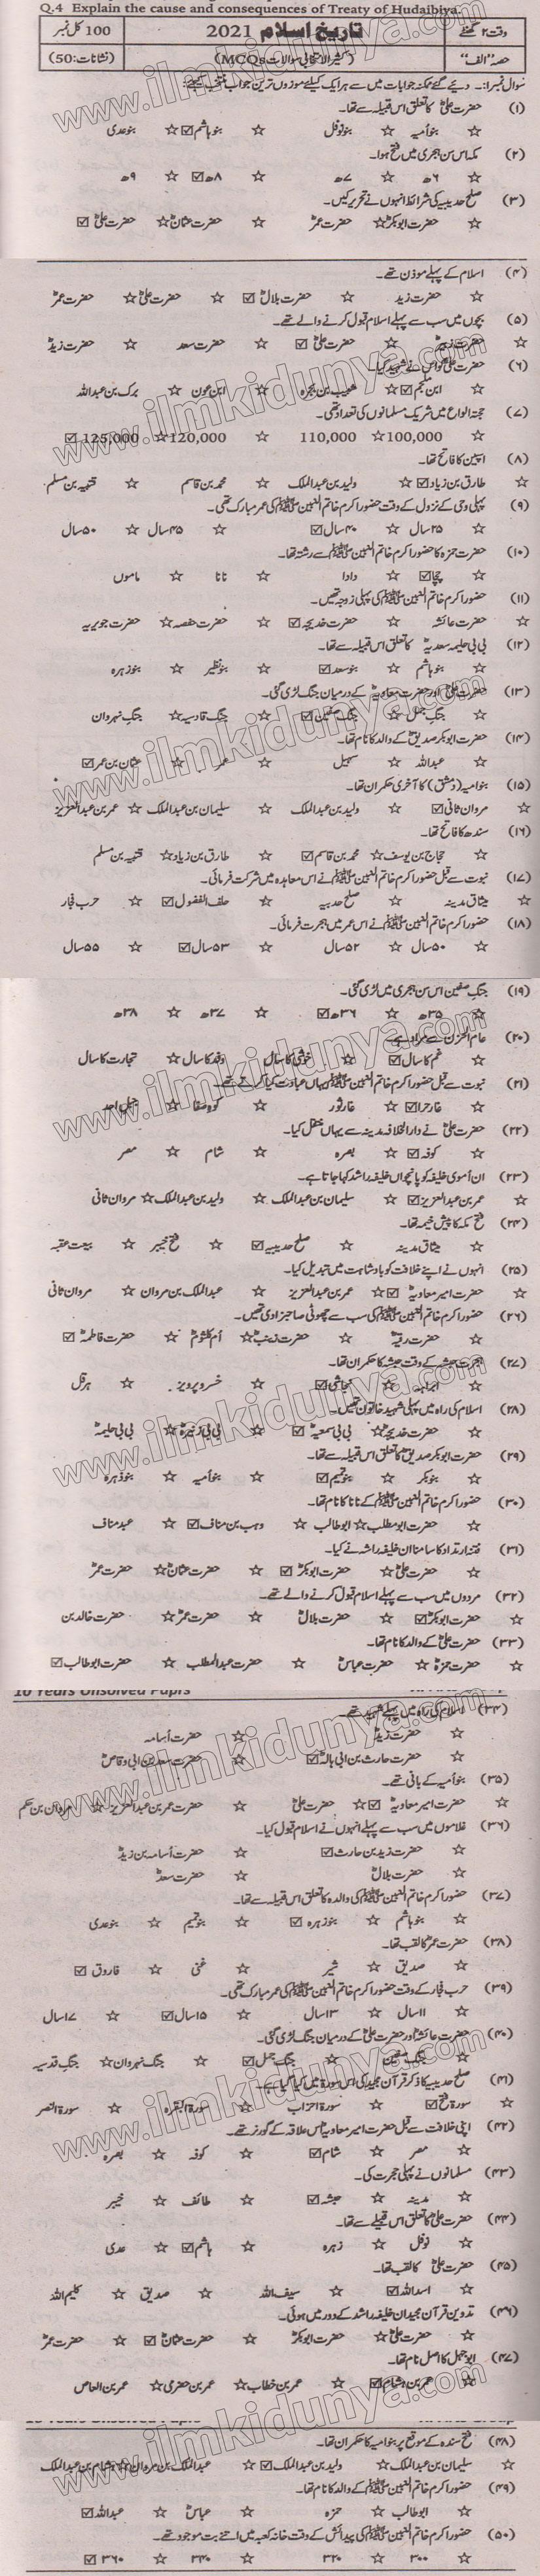 Q.4 Explain the cause and consequences of Treaty of Hudaibiya.
وقت ۲ گھنٹے تاریخ اسلام 2021 100 کل نمبر
حصہ "الف" (کثیر الانتخابی سوالات MCQs) (نشانات: 50)
سوال نمبر1:۔ دیئے گئے ممکنہ جوابات میں سے ہر ایک کیلئے موزوں ترین جواب منتخب کیجئے:
(۱) حضرت علیؓ کا تعلق اس قبیلہ سے تھا۔
☆ بنو امیہ ☆ بنو نوفل ☆ بنو ہاشم ☑ ☆ بنو عدی
(۲) مکہ اس سن ہجری میں فتح ہوا۔
☆ ۶ھ ☆ ۷ھ ☆ ۸ھ ☑ ☆ ۹ھ
(۳) صلح حدیبیہ کی شرائط انہوں نے تحریر کیں۔
☆ حضرت ابوبکرؓ ☆ حضرت عمرؓ ☆ حضرت عثمانؓ ☆ حضرت علیؓ ☑
(۴) اسلام کے پہلے موذن تھے۔
☆ حضرت زید ☆ حضرت بلالؓ ☑ ☆ حضرت علیؓ ☆ حضرت عمرؓ
(۵) بچوں میں سب سے پہلے اسلام قبول کرنے والے تھے۔
☆ حضرت زبیرؓ ☆ حضرت علیؓ ☑ ☆ حضرت سعد ☆ حضرت زیدؓ
(۶) حضرت علیؓ کو اس نے شہید کیا۔
☆ ابن ملجم ☑ ☆ شبیب بن بجرہ ☆ ابن عون ☆ برک بن عبداللہ
(۷) حجۃ الوداع میں شریک مسلمانوں کی تعداد تھی۔
☆ 100,000 ☆ 110,000 ☆ 120,000 ☆ 125,000 ☑
(۸) اسپین کا فاتح تھا۔
☆ طارق بن زیاد ☑ ☆ ولید بن عبدالملک ☆ محمد بن قاسم ☆ قتیبہ بن مسلم
(۹) پہلی وحی کے نزول کے وقت حضور اکرم خاتم النبین ﷺ کی عمر مبارک تھی۔
☆ ۲۵ سال ☆ ۴۰ سال ☑ ☆ ۴۵ سال ☆ ۵۰ سال
(۱۰) حضرت حمزہ کا حضور اکرم خاتم النبین ﷺ سے رشتہ تھا۔
☆ چچا ☑ ☆ دادا ☆ نانا ☆ ماموں
(۱۱) حضور اکرم خاتم النبین ﷺ کی پہلی زوجہ تھیں۔
☆ حضرت عائشہ ☆ حضرت خدیجہ ☑ ☆ حضرت حفصہ ☆ حضرت جویریہ
(۱۲) بی بی حلیمہ سعدیہؓ کا تعلق اس قبیلہ سے تھا۔
☆ بنو ہاشم ☆ بنو سعد ☑ ☆ بنو نظیر ☆ بنو زہرہ
(۱۳) حضرت علیؓ اور حضرت معاویہؓ کے درمیان جنگ لڑی گئی۔
☆ جنگ جمل ☆ جنگ صفین ☑ ☆ جنگ قادسیہ ☆ جنگ نہروان
(۱۴) حضرت ابوبکر صدیقؓ کے والد کا نام تھا۔
☆ عبداللہ ☆ سہیل ☆ عمر ☆ عثمان بن عمر ☑
(۱۵) بنو امیہ (دمشق) کا آخری حکمران تھا۔
☆ مروان ثانی ☑ ☆ ولید بن عبدالملک ☆ سلیمان بن عبدالملک ☆ عمر بن عبدالعزیز
(۱۶) سندھ کا فاتح تھا۔
☆ حجاج بن یوسف ☆ محمد بن قاسم ☑ ☆ طارق بن زیاد ☆ قتیبہ بن مسلم
(۱۷) نبوت سے قبل حضور اکرم خاتم النبین ﷺ نے اس معاہدہ میں شرکت فرمائی۔
☆ میثاق مدینہ ☆ صلح حدیبیہ ☆ حلف الفضول ☑ ☆ حرب فجار
(۱۸) حضور اکرم خاتم النبین ﷺ نے اس عمر میں ہجرت فرمائی۔
☆ ۵۰ سال ☆ ۵۲ سال ☆ ۵۳ سال ☑ ☆ ۵۵ سال
(۱۹) جنگ صفین اس سن ہجری میں لڑی گئی۔
☆ ۳۵ھ ☆ ۳۶ھ ☑ ☆ ۳۷ھ ☆ ۳۸ھ
(۲۰) عام الحزن سے مراد ہے۔
☆ غم کا سال ☑ ☆ خوشی کا سال ☆ وفد کا سال ☆ تجارت کا سال
(۲۱) نبوت سے قبل حضور اکرم خاتم النبین ﷺ یہاں عبادت کیا کرتے تھے۔
☆ غار حرا ☑ ☆ غار ثور ☆ کوہ صفا ☆ جبل احد
(۲۲) حضرت علیؓ نے دارالخلافہ مدینہ سے یہاں منتقل کیا۔
☆ کوفہ ☑ ☆ بصرہ ☆ شام ☆ مصر
(۲۳) ان اُموی خلیفہ کو پانچواں خلیفہ راشد کہا جاتا ہے۔
☆ عمر بن عبدالعزیز ☑ ☆ سلیمان بن عبدالملک ☆ ولید بن عبدالملک ☆ مروان ثانی
(۲۴) فتح مکہ کا پیش خیمہ تھا۔
☆ میثاق مدینہ ☆ صلح حدیبیہ ☑ ☆ فتح خیبر ☆ بیعت عقبہ
(۲۵) انہوں نے اپنے خلافت کو بادشاہت میں تبدیل کیا۔
☆ حضرت امیر معاویہؓ ☑ ☆ عمر بن عبدالعزیز ☆ عبدالملک بن مروان ☆ مروان ثانی
(۲۶) حضور اکرم خاتم النبین ﷺ کی سب سے چھوٹی صاحبزادی تھیں۔
☆ حضرت رقیہؓ ☆ حضرت زینبؓ ☆ اُم کلثومؓ ☆ حضرت فاطمہؓ ☑
(۲۷) ہجرت حبشہ کے وقت حبشہ کا حکمران تھا۔
☆ ابرہہ ☆ نجاشی ☑ ☆ خسرو پرویز ☆ ہرقل
(۲۸) اسلام کی راہ میں پہلی شہید خاتون تھیں۔
☆ حضرت خدیجہؓ ☆ بی بی سمعیہؓ ☑ ☆ بی بی زنیرہؓ ☆ بی بی حلیمہؓ
(۲۹) حضرت ابوبکر صدیقؓ کا تعلق اس قبیلہ سے تھا۔
☆ بنو بکر ☆ بنو تمیم ☑ ☆ بنو امیہ ☆ بنو ذہرہ
(۳۰) حضور اکرم خاتم النبین ﷺ کے نانا کا نام تھا۔
☆ حضرت ابو مطلب ☆ ابو طالب ☆ وہب بن مناف ☑ ☆ عبد مناف
(۳۱) فتنہ ارتداد کا سامنا ان خلیفہ راشد نے کیا۔
☆ حضرت علیؓ ☆ حضرت ابوبکرؓ ☑ ☆ حضرت عثمانؓ ☆ حضرت عمرؓ
(۳۲) مردوں میں سب سے پہلے اسلام قبول کرنے والے تھے۔
☆ حضرت ابوبکرؓ ☑ ☆ حضرت بلالؓ ☆ حضرت عمرؓ ☆ حضرت خالد بن
(۳۳) حضرت علیؓ کے والد کا نام تھا۔
☆ حضرت حمزہؓ ☆ حضرت عباسؓ ☆ حضرت عبدالمطلب ☆ حضرت ابوطالب ☑
10 Years Unsolved Paprs
(۳۴) اسلام کی راہ میں پہلے شہید تھے۔
☆ حضرت زیدؓ ☆ حضرت اُسامہ
☆ حضرت حارث بن ابی ہالہؓ ☑ ☆ حضرت سعد بن ابی وقاصؓ
(۳۵) بنو امیہ کے بانی تھے۔
☆ حضرت امیر معاویہؓ ☑ ☆ حضرت علیؓ ☆ حضرت عمر بن عبدالعزیز ☆ مروان بن حکم
(۳۶) غلاموں میں سب سے پہلے انہوں نے اسلام قبول کیا۔
☆ حضرت زید بن حارثؓ ☑ ☆ حضرت اُسامہ بن زیدؓ
☆ حضرت بلالؓ ☆ حضرت سعدؓ
(۳۷) حضور اکرم خاتم النبین ﷺ کی والدہ کا تعلق اس قبیلہ سے تھا۔
☆ بنو ہاشم ☆ بنو زہرہ ☑ ☆ بنو تمیم ☆ بنو عدی
(۳۸) حضرت عمرؓ کا لقب تھا۔
☆ صدیق ☆ شیر ☆ غنی ☆ فاروق ☑
(۳۹) حرب فجار کے وقت حضور اکرم خاتم النبین ﷺ کی عمر مبارک تھی۔
☆ ۱۱ سال ☆ ۱۳ سال ☆ ۱۵ سال ☑ ☆ ۱۷ سال
(۴۰) حضرت عائشہؓ اور حضرت علیؓ کے درمیان جنگ لڑی گئی۔
☆ جنگ صفین ☆ جنگ جمل ☑ ☆ جنگ نہروان ☆ جنگ قدسیہ
(۴۱) صلح حدیبیہ کا ذکر قرآن مجید کی اس سورۃ میں کیا گیا ہے۔
☆ سورۃ فتح ☑ ☆ سورۃ احزاب ☆ سورۃ البقرہ ☆ سورۃ النصر
(۴۲) اپنی خلافت سے قبل حضرت امیر معاویہؓ اس علاقہ کے گورنر تھے۔
☆ مصر ☆ شام ☑ ☆ کوفہ ☆ بصرہ
(۴۳) مسلمانوں نے پہلی ہجرت کی۔
☆ مدینہ ☆ حبشہ ☑ ☆ طائف ☆ خیبر
(۴۴) حضرت علیؓ کا تعلق اس قبیلے سے تھا۔
☆ نوفل ☆ زہرہ ☆ ہاشم ☑ ☆ عدی
(۴۵) حضرت علیؓ کا لقب تھا۔
☆ اسد اللہ ☑ ☆ سیف اللہ ☆ صدیق ☆ کلیم اللہ
(۴۶) تدوین قرآن مجید ان خلیفہ راشد کے دور میں ہوئی۔
☆ حضرت علیؓ ☆ حضرت ابوبکرؓ ☆ حضرت عثمانؓ ☑ ☆ حضرت عمرؓ
(۴۷) ابو جہل کا اصل نام تھا۔
☆ عمر بن ہشام ☑ ☆ عمر بن خطاب ☆ عمر بن حضرمی ☆ عمر بن العاص
(۴۸) فتح سندھ کے موقع پر بنو امیہ کا حکمران تھا۔
☆ سلیمان بن عبدالملک ☆ ولید بن عبدالملک ☑ ☆ عبدالملک بن مروان ☆ ہشام بن عبدالملک
(۴۹) حضور اکرم خاتم النبین ﷺ کے والد کا نام تھا۔
☆ ابو طالب ☆ حمزہ ☆ عباسؓ ☆ عبداللہ ☑
(۵۰) حضور اکرم خاتم النبین ﷺ کی پیدائش کے وقت خانہ کعبہ میں اتنے بت موجود تھے۔
☆ ۳۰۰ ☆ ۳۲۰ ☆ ۳۴۰ ☆ ۳۶۰ ☑
www.ilmkidunya.com